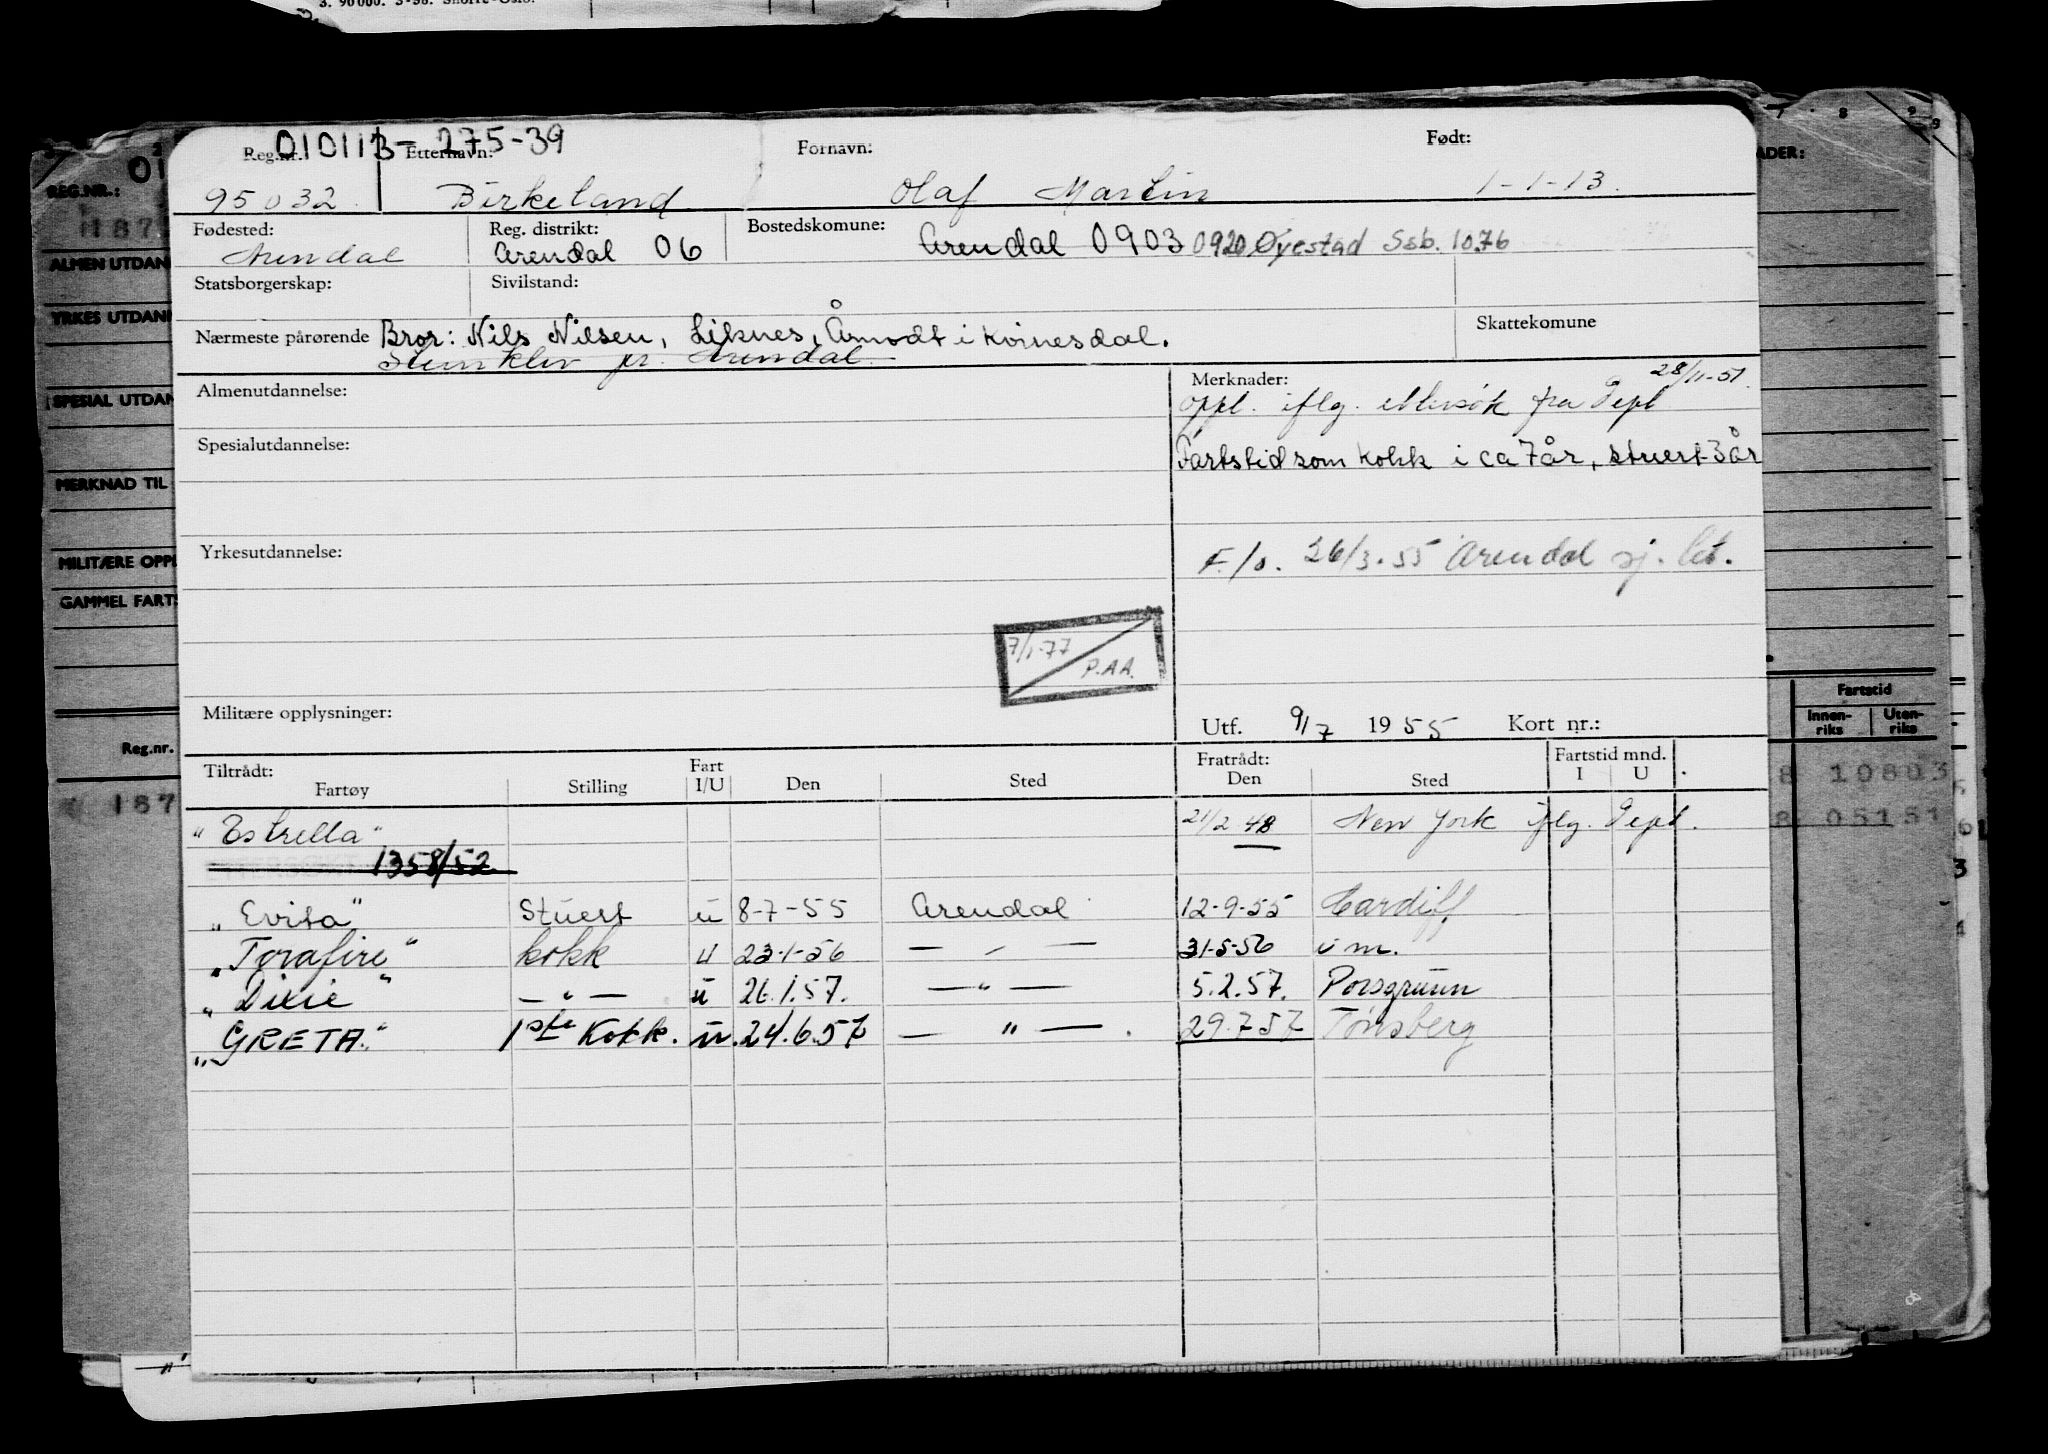 3. 90000. 3-56. Snorre-Oslo.
Reg.nr. 010113-275-39 Etternavn: Fornavn: Født:
95032 Birkeland Olaf Martin 1-1-13.
Fødested: Reg. distrikt: Bostedskomune:
Arendal Arendal 06 Arendal 0903 0920 Øyestad Ssb. 1076
Statsborgerskap: Sivilstand:
Nærmeste pårørende Bror: Nils Nilsen, Liknes, Åmodt i Kvinesdal. Skattekomune
pr. Arendal
Almenutdannelse: Merknader: 28/11-51.
oppl. iflg. fra Dept
Spesialutdannelse: Fartstid som kokk i ca 7 år, stuert 3 år
Yrkesutdannelse: F./o. 26/3-55 Arendal sj.
7/1-77
P.AA.
Militære opplysninger: Utf. 9/7 1955 Kort nr.:
Tiltrådt: Fratrådt: Fartstid mnd.
Fartøy Stilling Fart I/U Den Sted Den Sted I U
"Estrella" 21/2 48 New York iflg. Dept.
1358/52
"Evita" Stuert u 8-7-55 Arendal 12-9-55 Cardiff
"Torafire" kokk u 23-1-56 — - — 31-5-56 u m.
"Dixie" — " — u 26.1.57. — " — 5.2.57. Porsgrunn
"GRETA." 1ste Kokk. u. 24.6.57 — " — . 29.7.57 Tønsberg
REG.NR.: 01
187
ALMEN UTDAN
YRKES UTDAN
SPESIAL UTDAN
MERKNAD TIL
MILITÆRE OPPL
GAMMEL FARTS
Reg.nr.
187
7 8 9
ADER:
Fartstid
Innen-riks Uten-riks
8 10803
8 05151